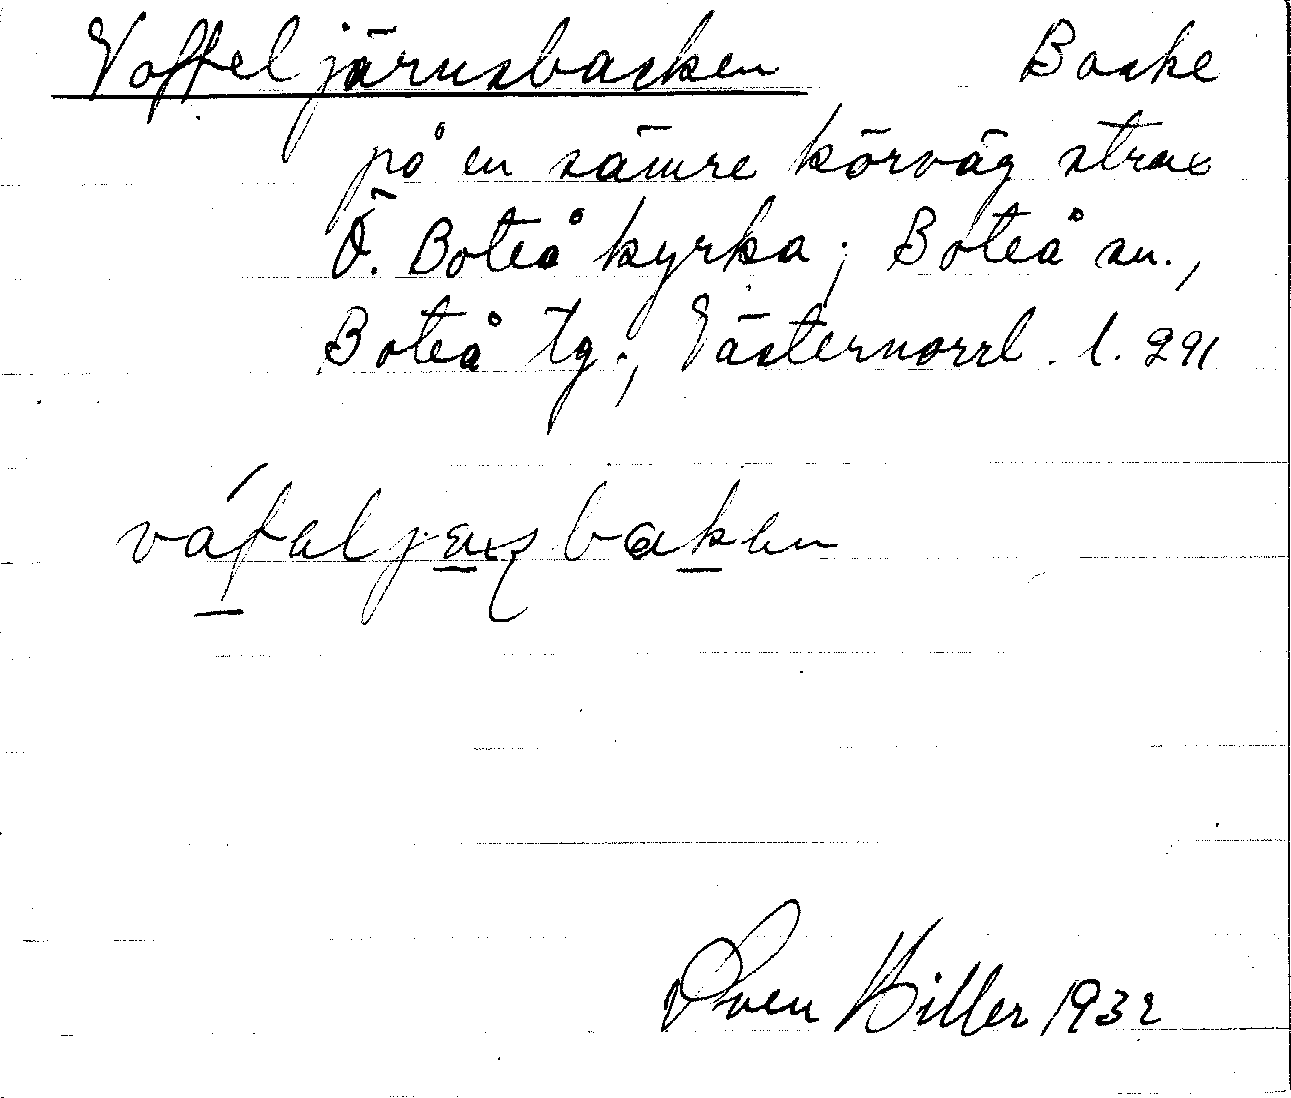 Voffeljärnsbacken Backe
på en sämre körväg strax
Ö. Boteå kyrka; Boteå sn.,
Boteå tg., Västernorrl. l. 291
Sven Hiller 1932